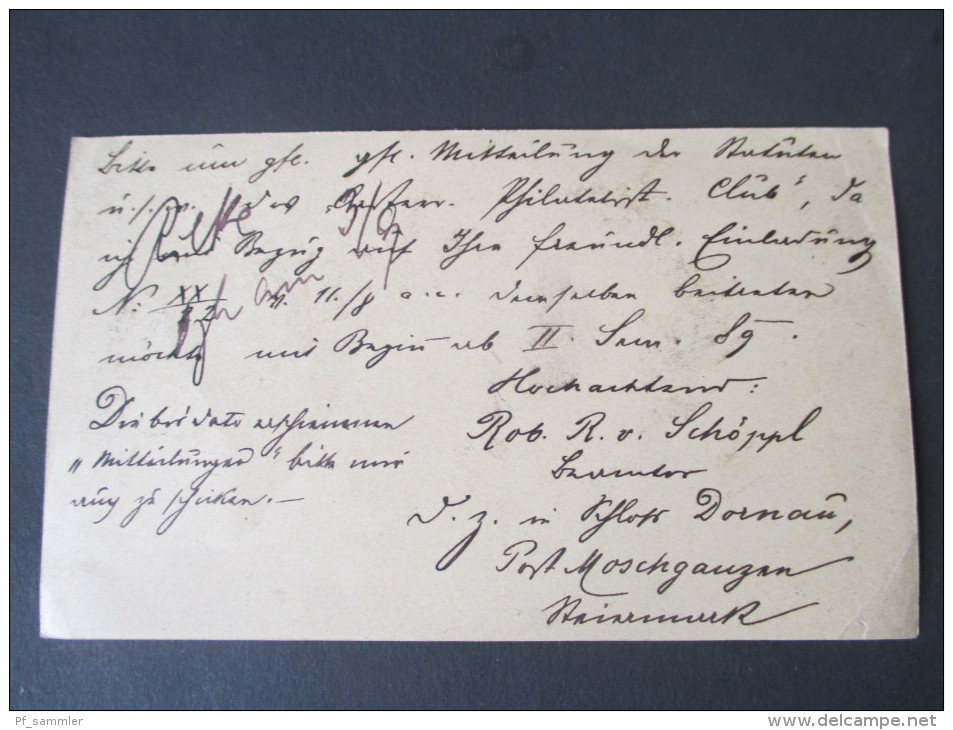 Bitte um gfl. gfl. Mitteilung der Statuten
u. s. w. des „Oesterr. Philatelist. Club“, da
ich mit Bezug auf Ihre freundl. Einladung
No. XX v. 11./8 a. c. demselben beitreten
möchte mit Beginn ab II. Sem. 89.
Hochachtend:
Rob. R. v. Schöppl
Beamter
d. z. in Schloss Dornau,
Post Moschganzen
Steiermark
Die bis dato erschienenen
„Mitteilungen“ bitte mir
auch zu schicken.—
Pf_sammler
www.delcampe.net